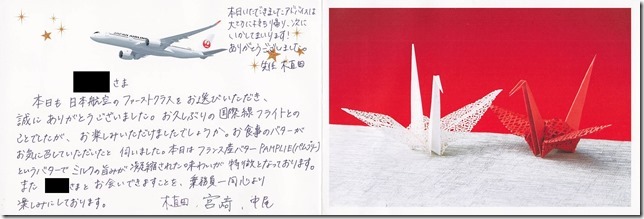 本日いただきましたアドバイスは
大切に持ち帰り、次に
いかしてまいります!
ありがとうございました。
先任 植田
JAPAN AIRLINES
さま
本日も 日本航空の ファーストクラスを お選びいただき、
誠に ありがとうございました。お久しぶりの 国際線 フライトとの
ことでしたが、お楽しみいただけましたでしょうか。お食事のバターが
お気に召していただいたと 伺いました。本日は フランス産バター PAMPLIE(パムプリー)
というバターで ミルクの旨みが 凝縮された 味わいが 特徴となっております。
また さまと お会いできますことを、乗務員一同 心より
楽しみにしております。
植田、宮崎、中尾